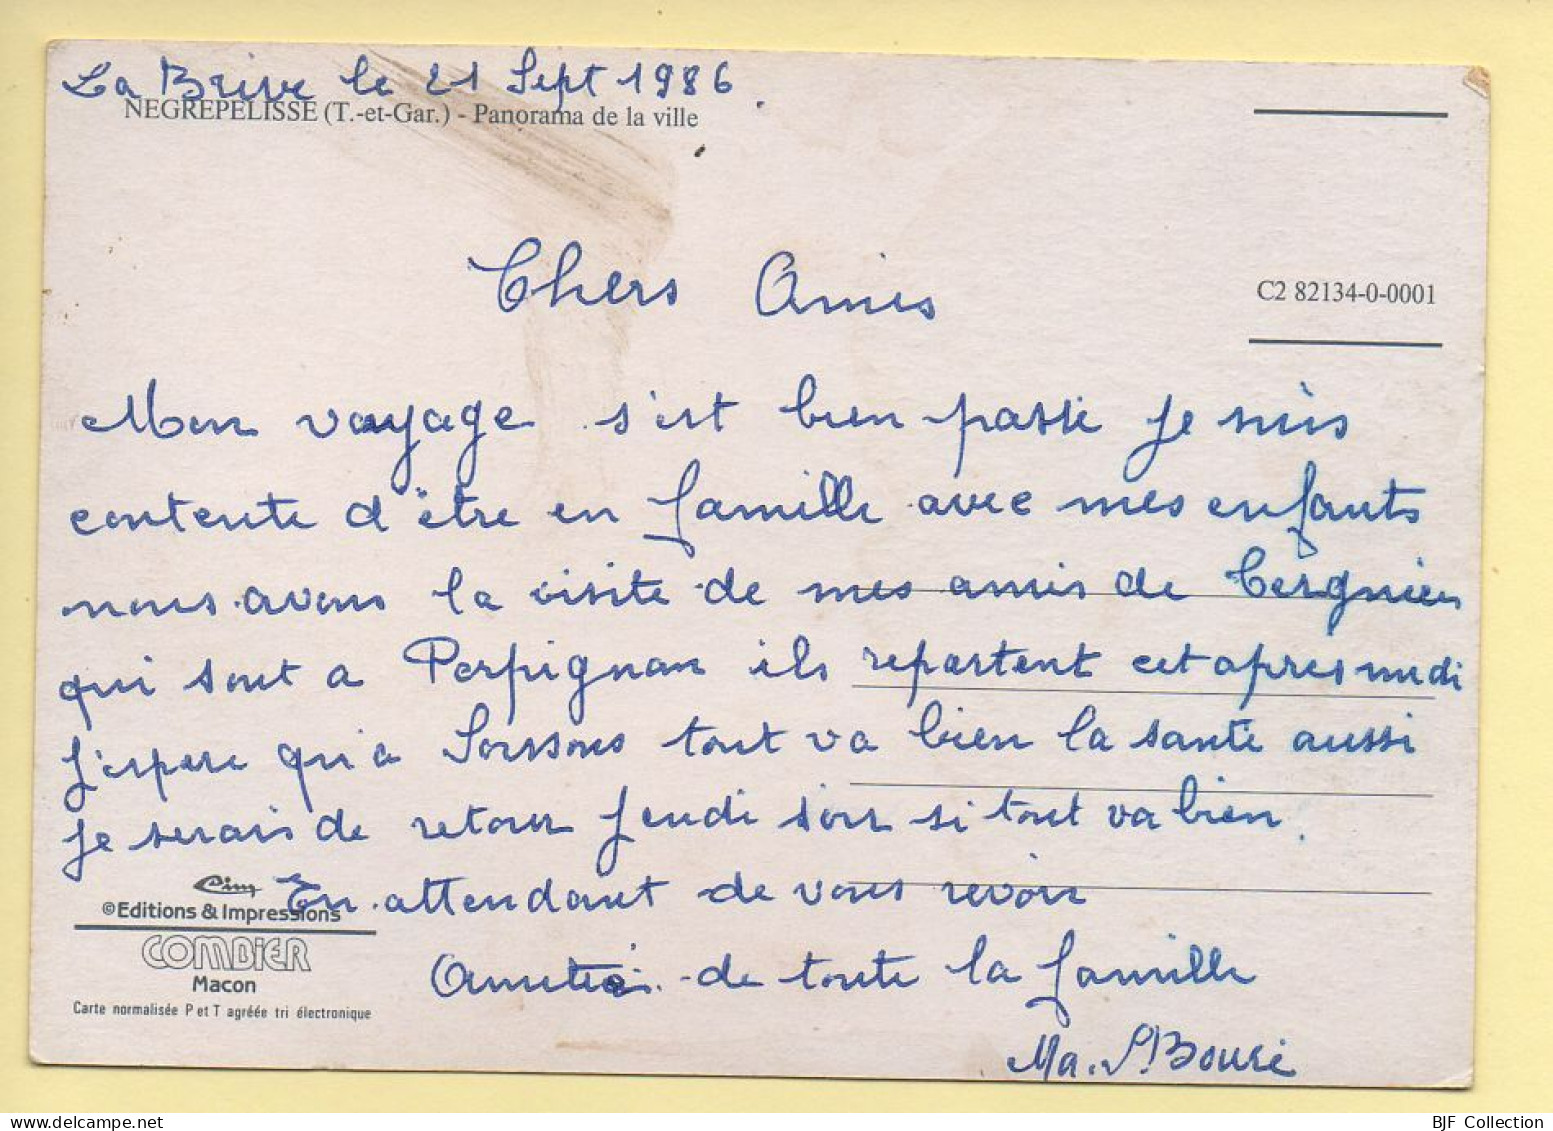 La Brive le 21 Sept 1986.
NEGREPELISSE (T.-et-Gar.) - Panorama de la ville
Chers Amis
C2 82134-0-0001
Mon voyage s'est bien passé je suis
contente d'être en famille avec mes enfants
nous avons la visite de mes amis de Tergniers
qui sont a Perpignan ils repartent cet apres midi
j'espere qu'a Soissons tout va bien la santé aussi
je serais de retour jeudi soir si tout va bien.
En attendant de vous revoir
Cim
©Editions & Impressions
COMBIER
Macon
Carte normalisée P et T agréée tri électronique
Amitiés de toute la famille
Ma. Bouré
BJF Collection